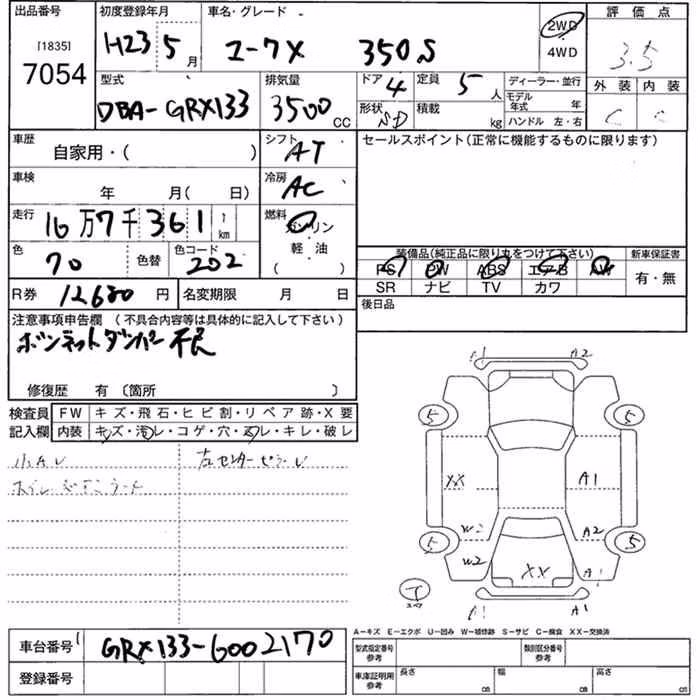 出品番号
[1835]
7054
初度登録年月
H23 5 月
車名・グレード
マークX 350S
2WD
4WD
評価点
3.5
外装 内装
C C
型式
DBA-GRX133
排気量
3500 CC
ドア 4
形状 SD
定員 5 人
積載 kg
ディーラー・並行
モデル年式 年
ハンドル 左・右
車歴
自家用・( )
シフト
AT
セールスポイント(正常に機能するものに限ります)
車検
年 月( 日)
冷房
AC
走行
16万7千361 km
燃料
ガソリン
軽・油
( )
色
70
色替
色コード
202
装備品(純正品に限り丸をつけて下さい)
PS PW ABS エアB AW
SR ナビ TV カワ
新車保証書
有・無
R券 12680 円
名変期限 月 日
後日品
注意事項申告欄 (不具合内容等は具体的に記入して下さい)
ボンネットダンパー不良
修復歴 有 〔箇所 〕
検査員記入欄
FW キズ・飛石・ヒビ割・リペア跡・X要
内装 キズ・汚レ・コゲ・穴・スレ・キレ・破レ
小A レ
左センターピラーレ
A1 A2
5 5
XX A1
W2 A2
5 5
W2 XX A1
T
スペア
A1 A1
A-キズ E-エクボ U-凹み W-補修跡 S-サビ C-腐食 XX-交換済
車台番号 GRX133-6002170
登録番号
型式指定番号 参考
類別区分番号 参考
車庫証明用 参考
長さ cm 幅 cm 高さ cm